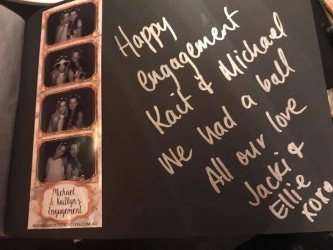 Michael
& Kaitlyn's
Engagement
Happy
engagement
Kait & Michael
We had a ball
All our love
Jacki &
Ellie
xoxo